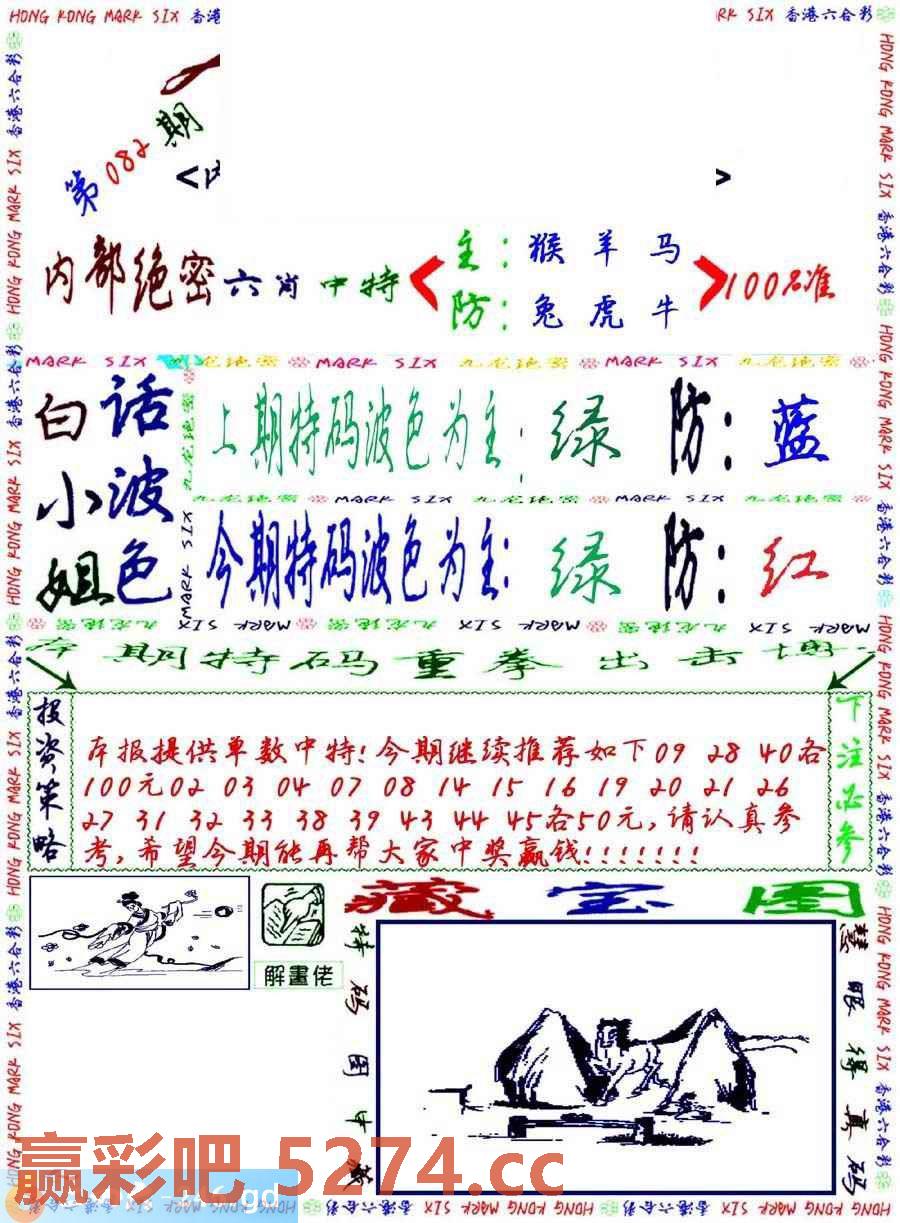 HONG KONG MARK SIX 香港六合彩
第082期
内部绝密六肖中特
主：猴羊马
防：兔虎牛
100%准
MARK SIX 九龙绝密 MARK SIX 九龙绝密 MARK SIX 九龙绝密
白话
小波
姐色
上期特码波色为主：绿 防：蓝
九龙绝密 MARK SIX 九龙绝密 MARK SIX 九龙绝密
今期特码波色为主：绿 防：红
MARK SIX 九龙绝密 MARK SIX 九龙绝密 MARK SIX
期特码重拳出击
投资策略
本报提供单数中特!今期继续推荐如下09 28 40各
100元02 03 04 07 08 14 15 16 19 20 21 26
27 31 32 33 38 39 43 44 45各50元,请认真参
考,希望今期能再帮大家中奖赢钱!!!!!!!
下注必参
解畫佬
藏宝图
特码图中
慧眼得真码
赢彩吧 5274.cc